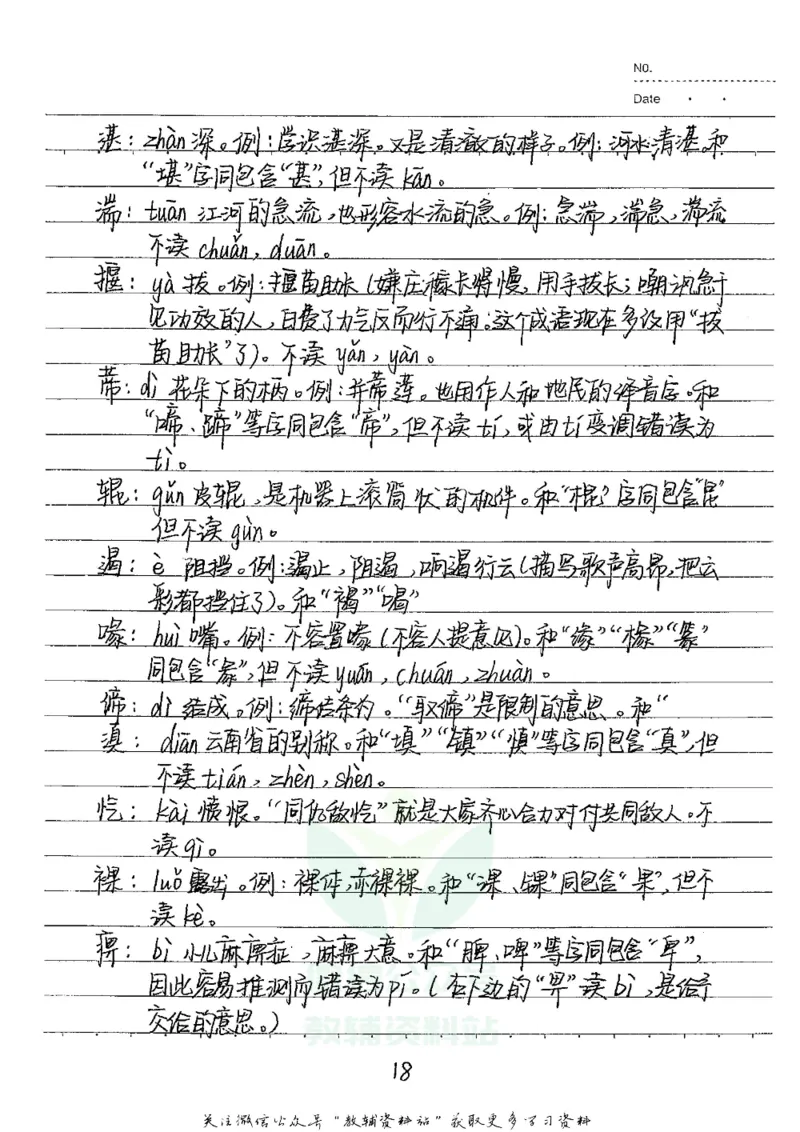 No.
Date
湛：zhàn 深。例：学识湛深。又是清澈的样子。例：河水清湛。和
“堪”字同包含“甚”，但不读 kān。
湍：tuān 江河的急流，也形容水流的急。例：急湍，湍急，湍流
不读 chuǎn，duān。
揠：yà 拔。例：揠苗助长（嫌庄稼长得慢，用手拔长；嘲讽急于
见功效的人，白费了力气反而行不通。这个成语现在多设用“拔
苗助长”了）。不读 yǎn，yàn。
蒂：dì 花朵下的柄。例：并蒂莲。也用作人和地民的译音字。和
“啼、蹄”等字同包含“帝”，但不读 tí，或由 tí 变调错读为
tì。
辊：gǔn 皮辊，是机器上滚筒状的机件。和“棍”字同包含“昆”
但不读 gùn。
遏：è 阻挡。例：遏止，阴遏，响遏行云（描写歌声高昂，把云
彩都挡住了）。和“褐”“喝”
喙：huì 嘴。例：不容置喙（不容人提意见）。和“缘”“椽”“篆”
同包含“彖”，但不读 yuán，chuán，zhuàn。
缔：dì 结成。例：缔结条约。“取缔”是限制的意思。和“
滇：diān 云南省的别称。和“填”“镇”“慎”等字同包含“真”，但
不读 tián，zhèn，shèn。
忾：kài 愤恨。“同仇敌忾”就是大家齐心合力对付共同敌人。不
读 qì。
裸：luǒ 露出。例：裸体，赤裸裸。和“课、锞”同包含“果”，但不
读 kè。
痹：bì 小儿麻痹症，麻痹大意。和“脾、啤”等字同包含“卑”，
因此容易推测而错读为 pí。（在下边的“畀”读 bì，是给予
交给的意思。）
教辅资料站
18
关注微信公众号“教辅资料站”获取更多学习资料